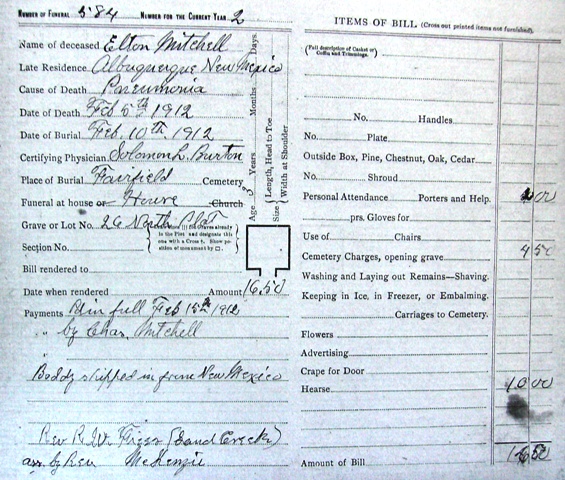 NUMBER OF FUNERAL 584 NUMBER FOR THE CURRENT YEAR 2
Name of deceased Elton Mitchell
Late Residence Albuquerque New Mexico
Cause of Death Pneumonia
Date of Death Feb 5th 1912
Date of Burial Feb. 10th. 1912
Certifying Physician Solomon L. Burton
Place of Burial Fairfield Cemetery
Funeral at house or House Church
Grave or Lot No. 26 North Plat
Section No.
Bill rendered to
Date when rendered Amount 16.50
Payments Pd in full Feb 15th 1912
" " by Chas. Mitchell
"
Boddy shipped in from New Mexico
Rev R. W. (Sand Creek)
ass. by Rev McKenzie
Age 3 Years Months Days.
Size { Length, Head to Toe
Width at Shoulder
ITEMS OF BILL (Cross out printed items not furnished).
(Full description of Casket or
Coffin and Trimmings.
No. Handles
No. Plate
Outside Box, Pine, Chestnut, Oak, Cedar
No. Shroud
Personal Attendance Porters and Help. 2 00
prs. Gloves for
Use of Chairs
Cemetery Charges, opening grave 4 50
Washing and Laying out Remains—Shaving.
Keeping in Ice, in Freezer, or Embalming.
Carriages to Cemetery.
Flowers
Advertising
Crape for Door
Hearse 10 00
Amount of Bill 16 50